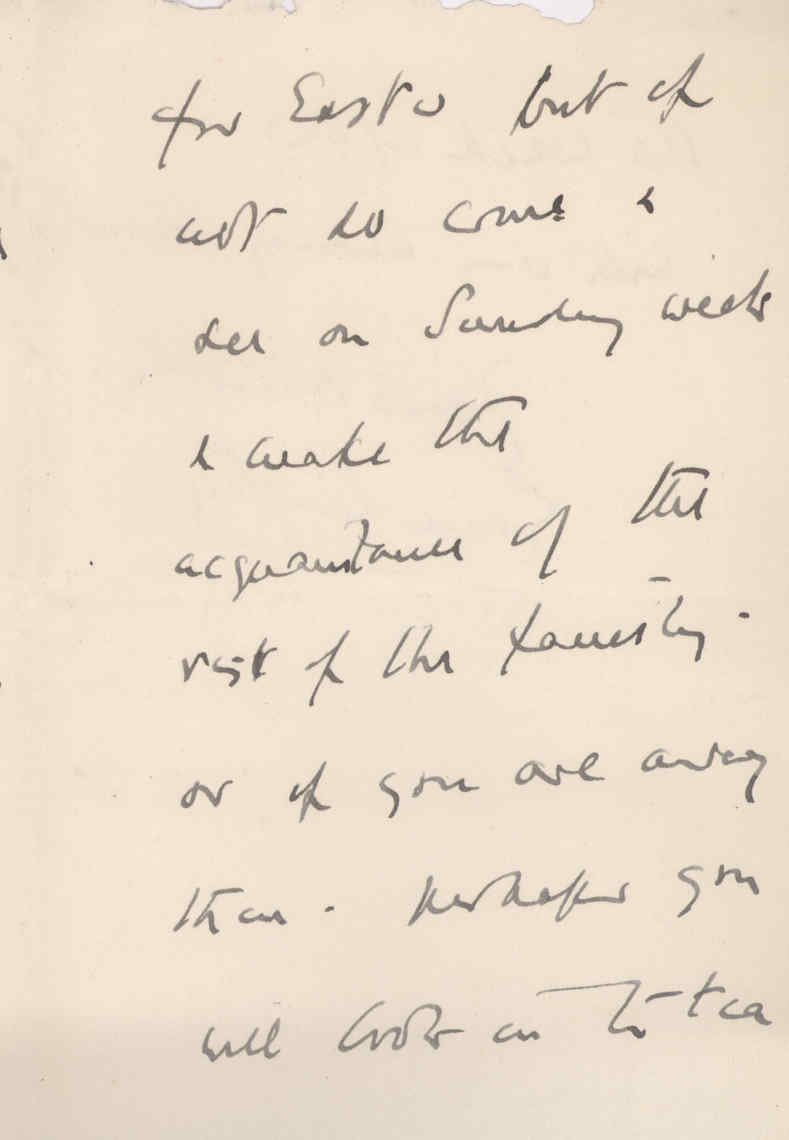 for Easter but if
not do come &
see on Sunday week
& make the
acquaintance of the
rest of the family -
or if you are away
then - perhaps you
will look in to tea